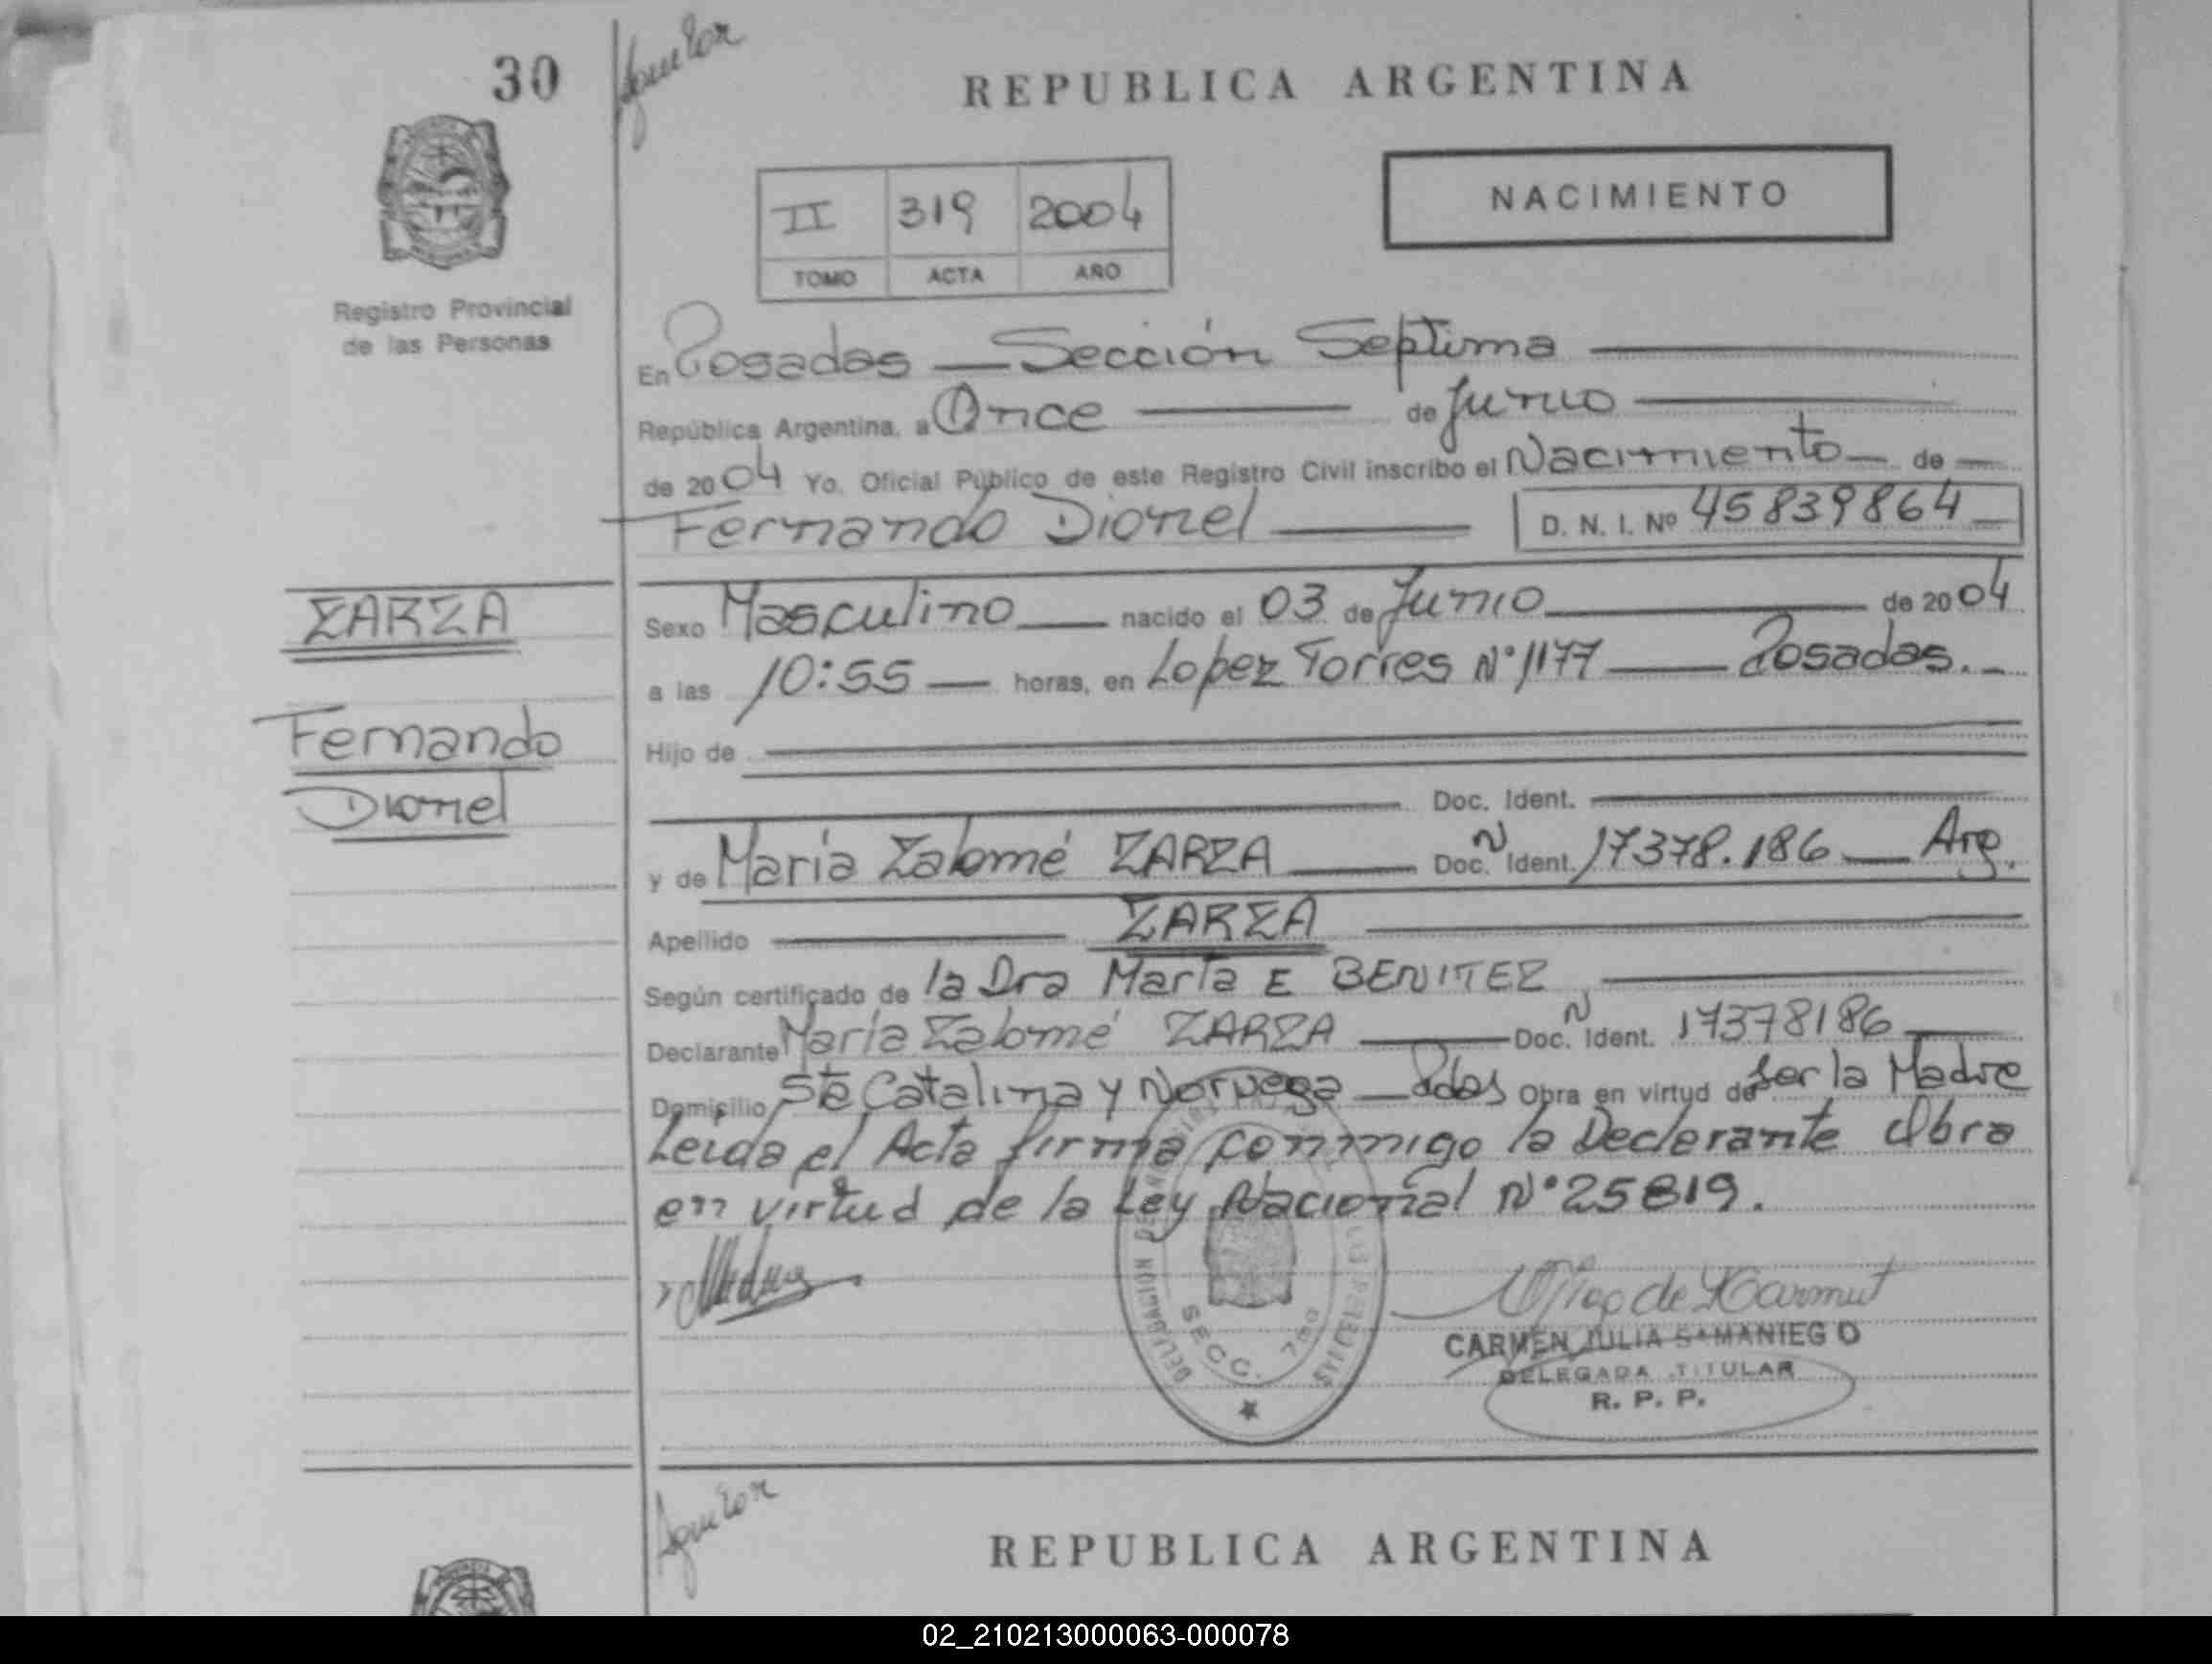 30
REPUBLICA ARGENTINA
NACIMIENTO
II 319 2004
TOMO ACTA AÑO
Registro Provincial
de las Personas
En Posadas — Sección Septima
República Argentina, a Once de Junio
de 2004 Yo, Oficial Público de este Registro Civil inscribo el Nacimiento — de
Fernando Dionel D. N. I. Nº 45839864
ZARZA
Fernando
Dionel
Sexo Masculino nacido el 03 de Junio de 2004
a las 10:55 — horas, en Lopez Torres Nº 1177 — Posadas.
Hijo de
Doc. Ident.
y de María Zalomé ZARZA Doc. N Ident. 17378.186 — Arg.
Apellido ZARZA
Según certificado de la Dra Marta E BENITEZ
Declarante María Zalomé ZARZA Doc. N Ident. 17378186
Domicilio Sta Catalina y Noruega — Pdas Obra en virtud de Ser la Madre
Leida el Acta firma conmigo la Declarante Obra
en virtud de la Ley Nacional Nº 25819.
SECC. 7ma
CARMEN JULIA SAMANIEGO
DELEGADA TITULAR
R. P. P.
REPUBLICA ARGENTINA
02_210213000063-000078